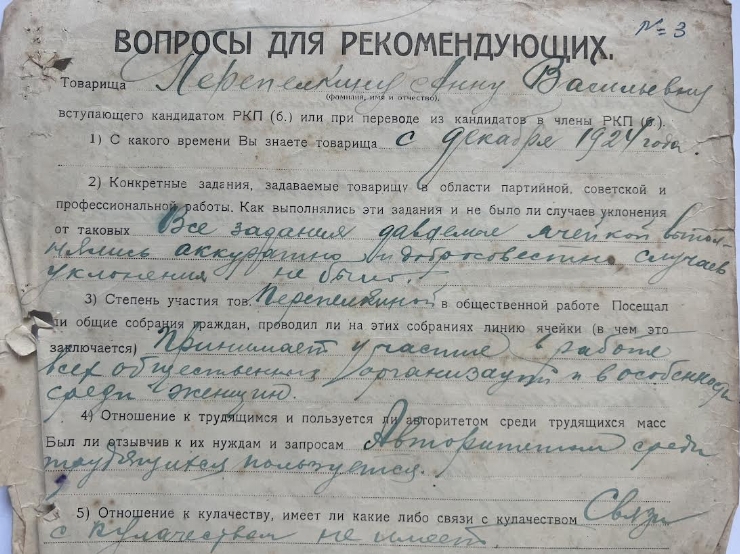 № 3
ВОПРОСЫ ДЛЯ РЕКОМЕНДУЮЩИХ.
Товарища Перепелкину Анну Васильевну
(фамилия, имя и отчество).
вступающего кандидатом РКП (б.) или при переводе из кандидатов в члены РКП (б.)
1) С какого времени Вы знаете товарища с декабря 1924 года.
2) Конкретные задания, задаваемые товарищу в области партийной, советской и
профессиональной работы. Как выполнялись эти задания и не было ли случаев уклонения
от таковых Все задания даваемые ячейкой выпол-
нялись аккуратно и добросовестно случаев
уклонения не было.
3) Степень участия тов. Перепелкиной в общественной работе Посещал
ли общие собрания граждан, проводил ли на этих собраниях линию ячейки (в чем это
заключается) Принимает участие в работе
всех общественных организаций и в особенности
среди женщин.
4) Отношение к трудящимся и пользуется ли авторитетом среди трудящихся масс
Был ли отзывчив к их нуждам и запросам Авторитетом среди
трудящихся пользуется.
5) Отношение к кулачеству, имеет ли какие либо связи с кулачеством Связи
с кулачеством не имеет.